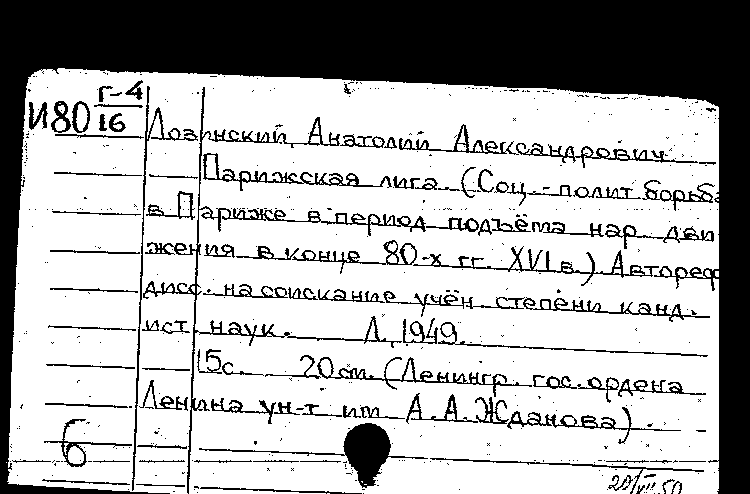 Г-4
И80 16
Лозинский, Анатолий Александрович
Парижская лига. (Соц.-полит борьба
в Париже в период подъёма нар. дви
жения в конце 80-х гг. XVI в.) Автореф
дисс. на соискание учён. степени канд.
ист. наук. Л. 1949.
15с. 20см. (Ленингр. гос. ордена
Ленина ун-т им А. А. Жданова).
6
20/VII 50